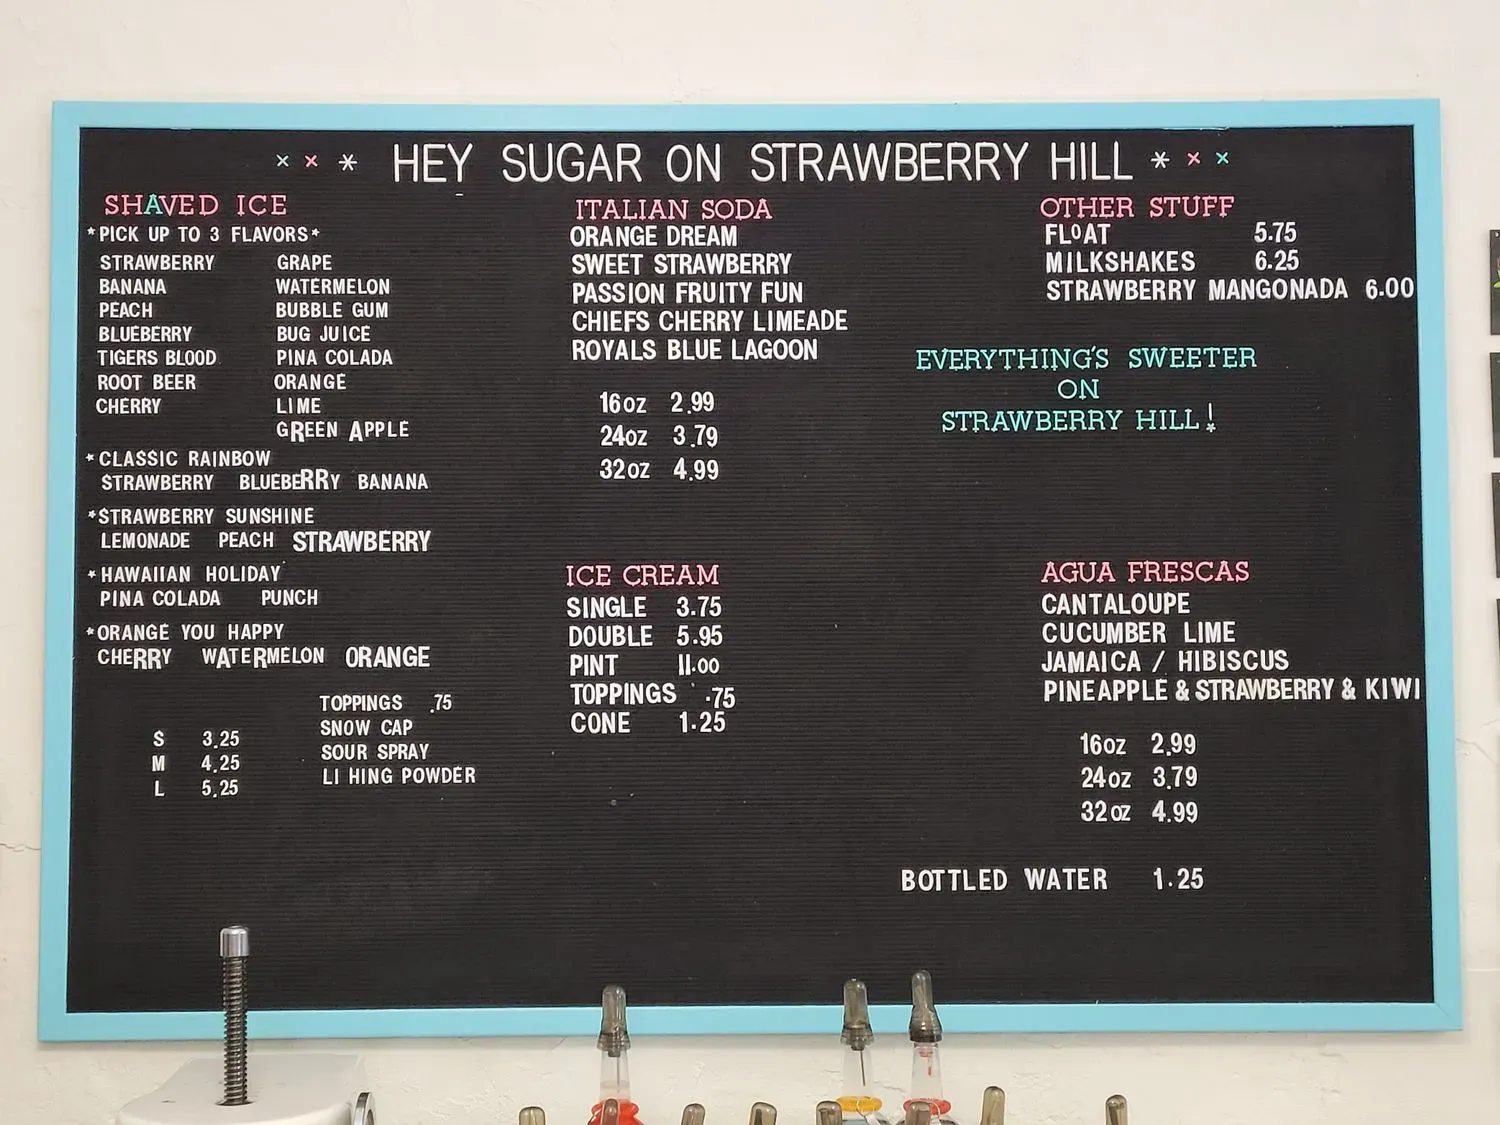 HEY SUGAR ON STRAWBERRY HILL
SHAVED ICE
*PICK UP TO 3 FLAVORS*
STRAWBERRY GRAPE
BANANA WATERMELON
PEACH BUBBLE GUM
BLUEBERRY BUG JUICE
TIGERS BLOOD PINA COLADA
ROOT BEER ORANGE
CHERRY LIME
GREEN APPLE
*CLASSIC RAINBOW
STRAWBERRY BLUEBERRY BANANA
*STRAWBERRY SUNSHINE
LEMONADE PEACH STRAWBERRY
*HAWAIIAN HOLIDAY
PINA COLADA PUNCH
*ORANGE YOU HAPPY
CHERRY WATERMELON ORANGE
S 3.25
M 4.25
L 5.25
TOPPINGS .75
SNOW CAP
SOUR SPRAY
LI HING POWDER
ITALIAN SODA
ORANGE DREAM
SWEET STRAWBERRY
PASSION FRUITY FUN
CHIEFS CHERRY LIMEADE
ROYALS BLUE LAGOON
16oz 2.99
24oz 3.79
32oz 4.99
ICE CREAM
SINGLE 3.75
DOUBLE 5.95
PINT 11.00
TOPPINGS .75
CONE 1.25
OTHER STUFF
FLOAT 5.75
MILKSHAKES 6.25
STRAWBERRY MANGONADA 6.00
EVERYTHING'S SWEETER
ON
STRAWBERRY HILL!
AGUA FRESCAS
CANTALOUPE
CUCUMBER LIME
JAMAICA / HIBISCUS
PINEAPPLE & STRAWBERRY & KIWI
16oz 2.99
24oz 3.79
32oz 4.99
BOTTLED WATER 1.25